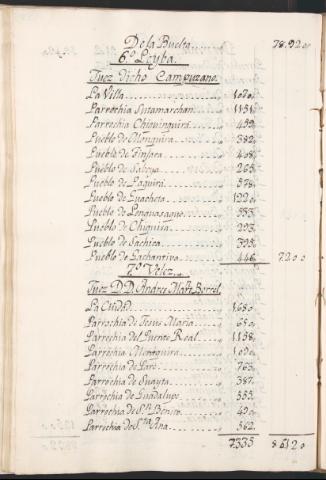 De la Buelta. 78.920
6.º Leyba.
Juez dicho Campuzano.
La Villa
Parrochia Sutamarchan
Parrochia Chiquinquirá
Pueblo de Moniquira 382,
Pueblo de Tinjaca
Pueblo de Saboya 265,
Pueblo de Raquirá 578,
Pueblo de Guacheta 1220,
Pueblo de Lenguasaque 553,
Pueblo de Chiquisa 293,
Pueblo de Sachica 395,
Pueblo de Gachantiva 446 7200
7.º Velez.
Juez D.D. Andres Mart. Borrel.
La Ciudad
Parrochia de Jesus Maria
Parrochia del Puente Real 1158,
Parrochia Moniquira
Parrochia de Pare 763,
Parrochia de Guayta 387,
Parrochia de Guadalupe 553,
Parrochia de S.n Benito
Parrochia de S.ta Ana 562,
7335